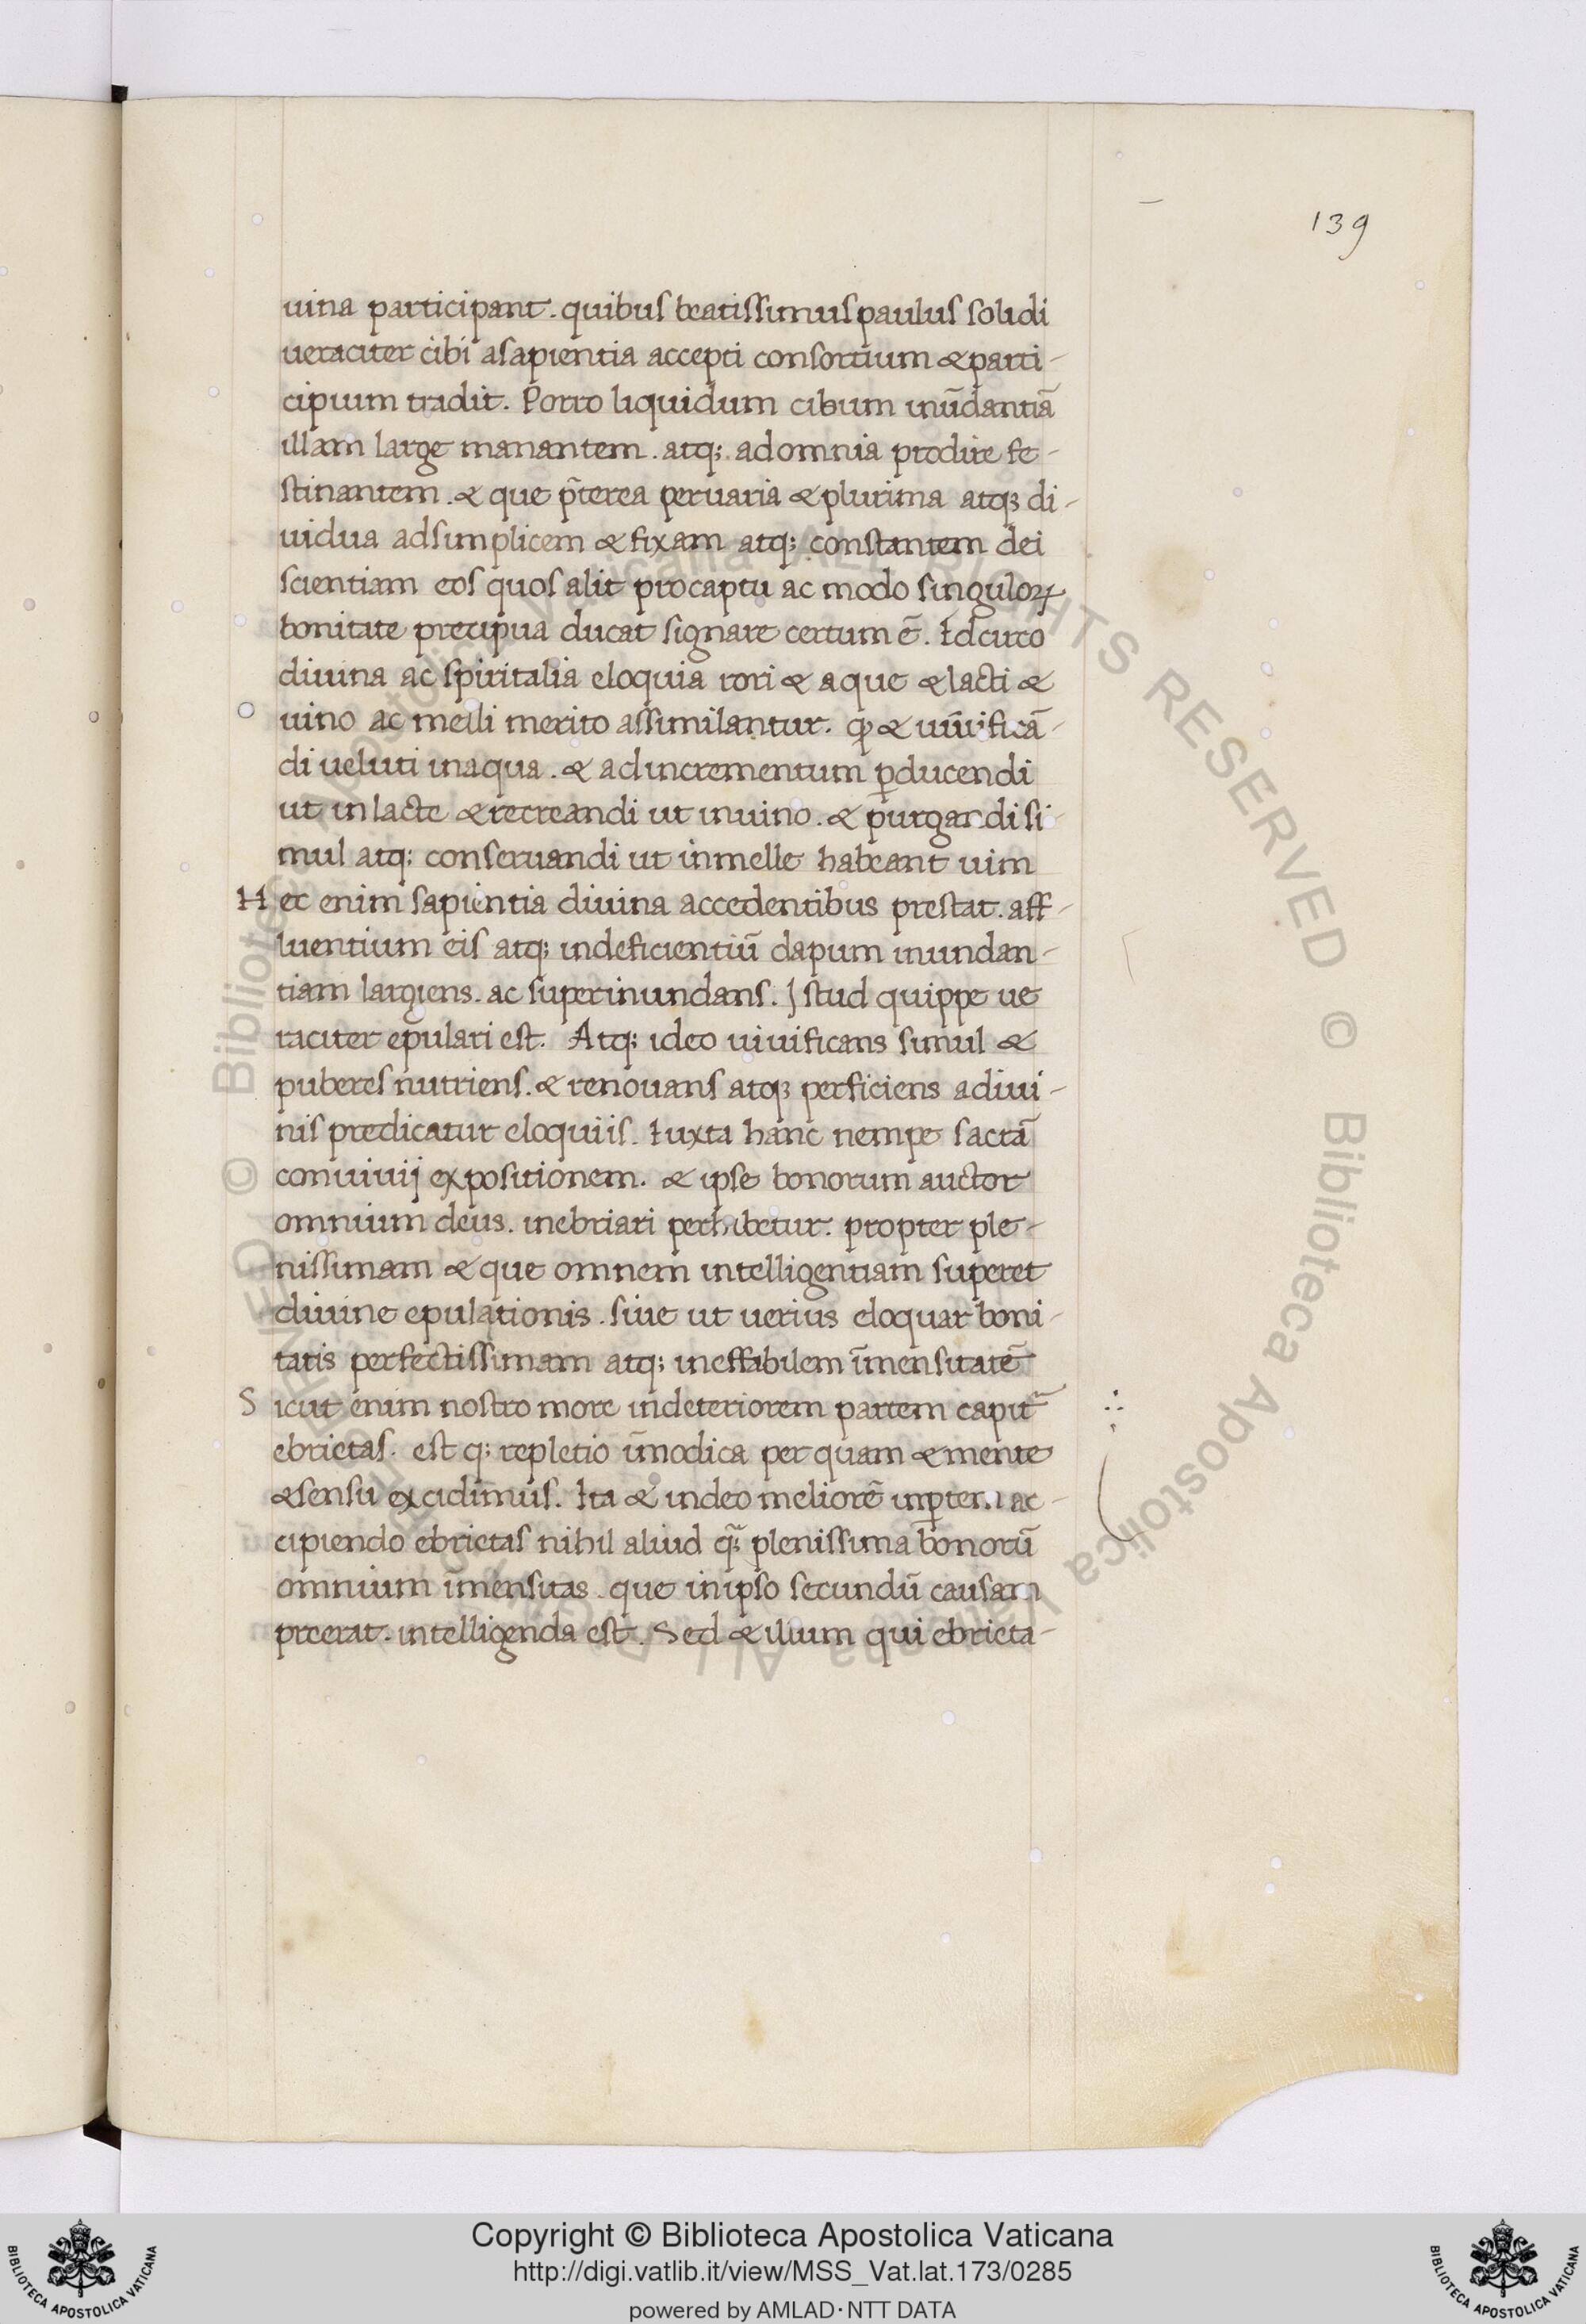 139
uina participant. quibus beatissimus paulus solidi
ueraciter cibi asapientia accepti consortium & parti-
cipium tradit. Porro liquidum cibum inūdantiā
illam large manantem. atq; adomnia prodire fe-
stinantem. & que p̄terea peruaria & plurima atq3 di-
uidua adsimplicem & fixam atq; constantem dei
scientiam eos quos alit procaptu ac modo singuloꝝ
bonitate precipua ducat signare certum ē. Idcirco
diuina ac spiritalia eloquia rori & aque & lacti &
uino ac melli merito assimilantur. ꝙ & uiuificā-
di ueluti inaqua. & adincrementum ꝑducendi
ut inlacte & recreandi ut inuino. & purgandi si-
mul atq; conseruandi ut inmelle habeant uim
Hec enim sapientia diuina accedentibus prestat. aff-
luentium eis atq; indeficientiū dapum inundan-
tiam largiens. ac superinundans. Istud quippe ue
raciter epulari est. Atq; ideo uiuificans simul &
puberes nutriens. & renouans atq3 perficiens adiui-
nis predicatur eloquiis. Iuxta hanc nempe sacrā
conuiuij expositionem. & ipse bonorum auctor
omnium deus. inebriari perhibetur. propter ple-
nissimam & que omnem intelligentiam superet
diuine epulationis. siue ut uerius eloquar boni-
tatis perfectissimam atq; ineffabilem īmensitatē
Sicut enim nostro more indeteriorem partem capit̄
ebrietas. est q; repletio īmodica per quam & mente
& sensu excidimus. Ita & indeo meliorē inꝑtem ac-
cipiendo ebrietas nihil aliud q̄; plenissima bonorū
omnium īmensitas. que inipso secundū causam
preerat. intelligenda est. Sed & illum qui ebrieta-
© Biblioteca Apostolica Vaticana ALL RIGHTS RESERVED
© Biblioteca Apostolica Vaticana ALL RIGHTS RESERVED
Copyright © Biblioteca Apostolica Vaticana
http://digi.vatlib.it/view/MSS_Vat.lat.173/0285
powered by AMLAD·NTT DATA
BIBLIOTECA APOSTOLICA VATICANA
BIBLIOTECA APOSTOLICA VATICANA